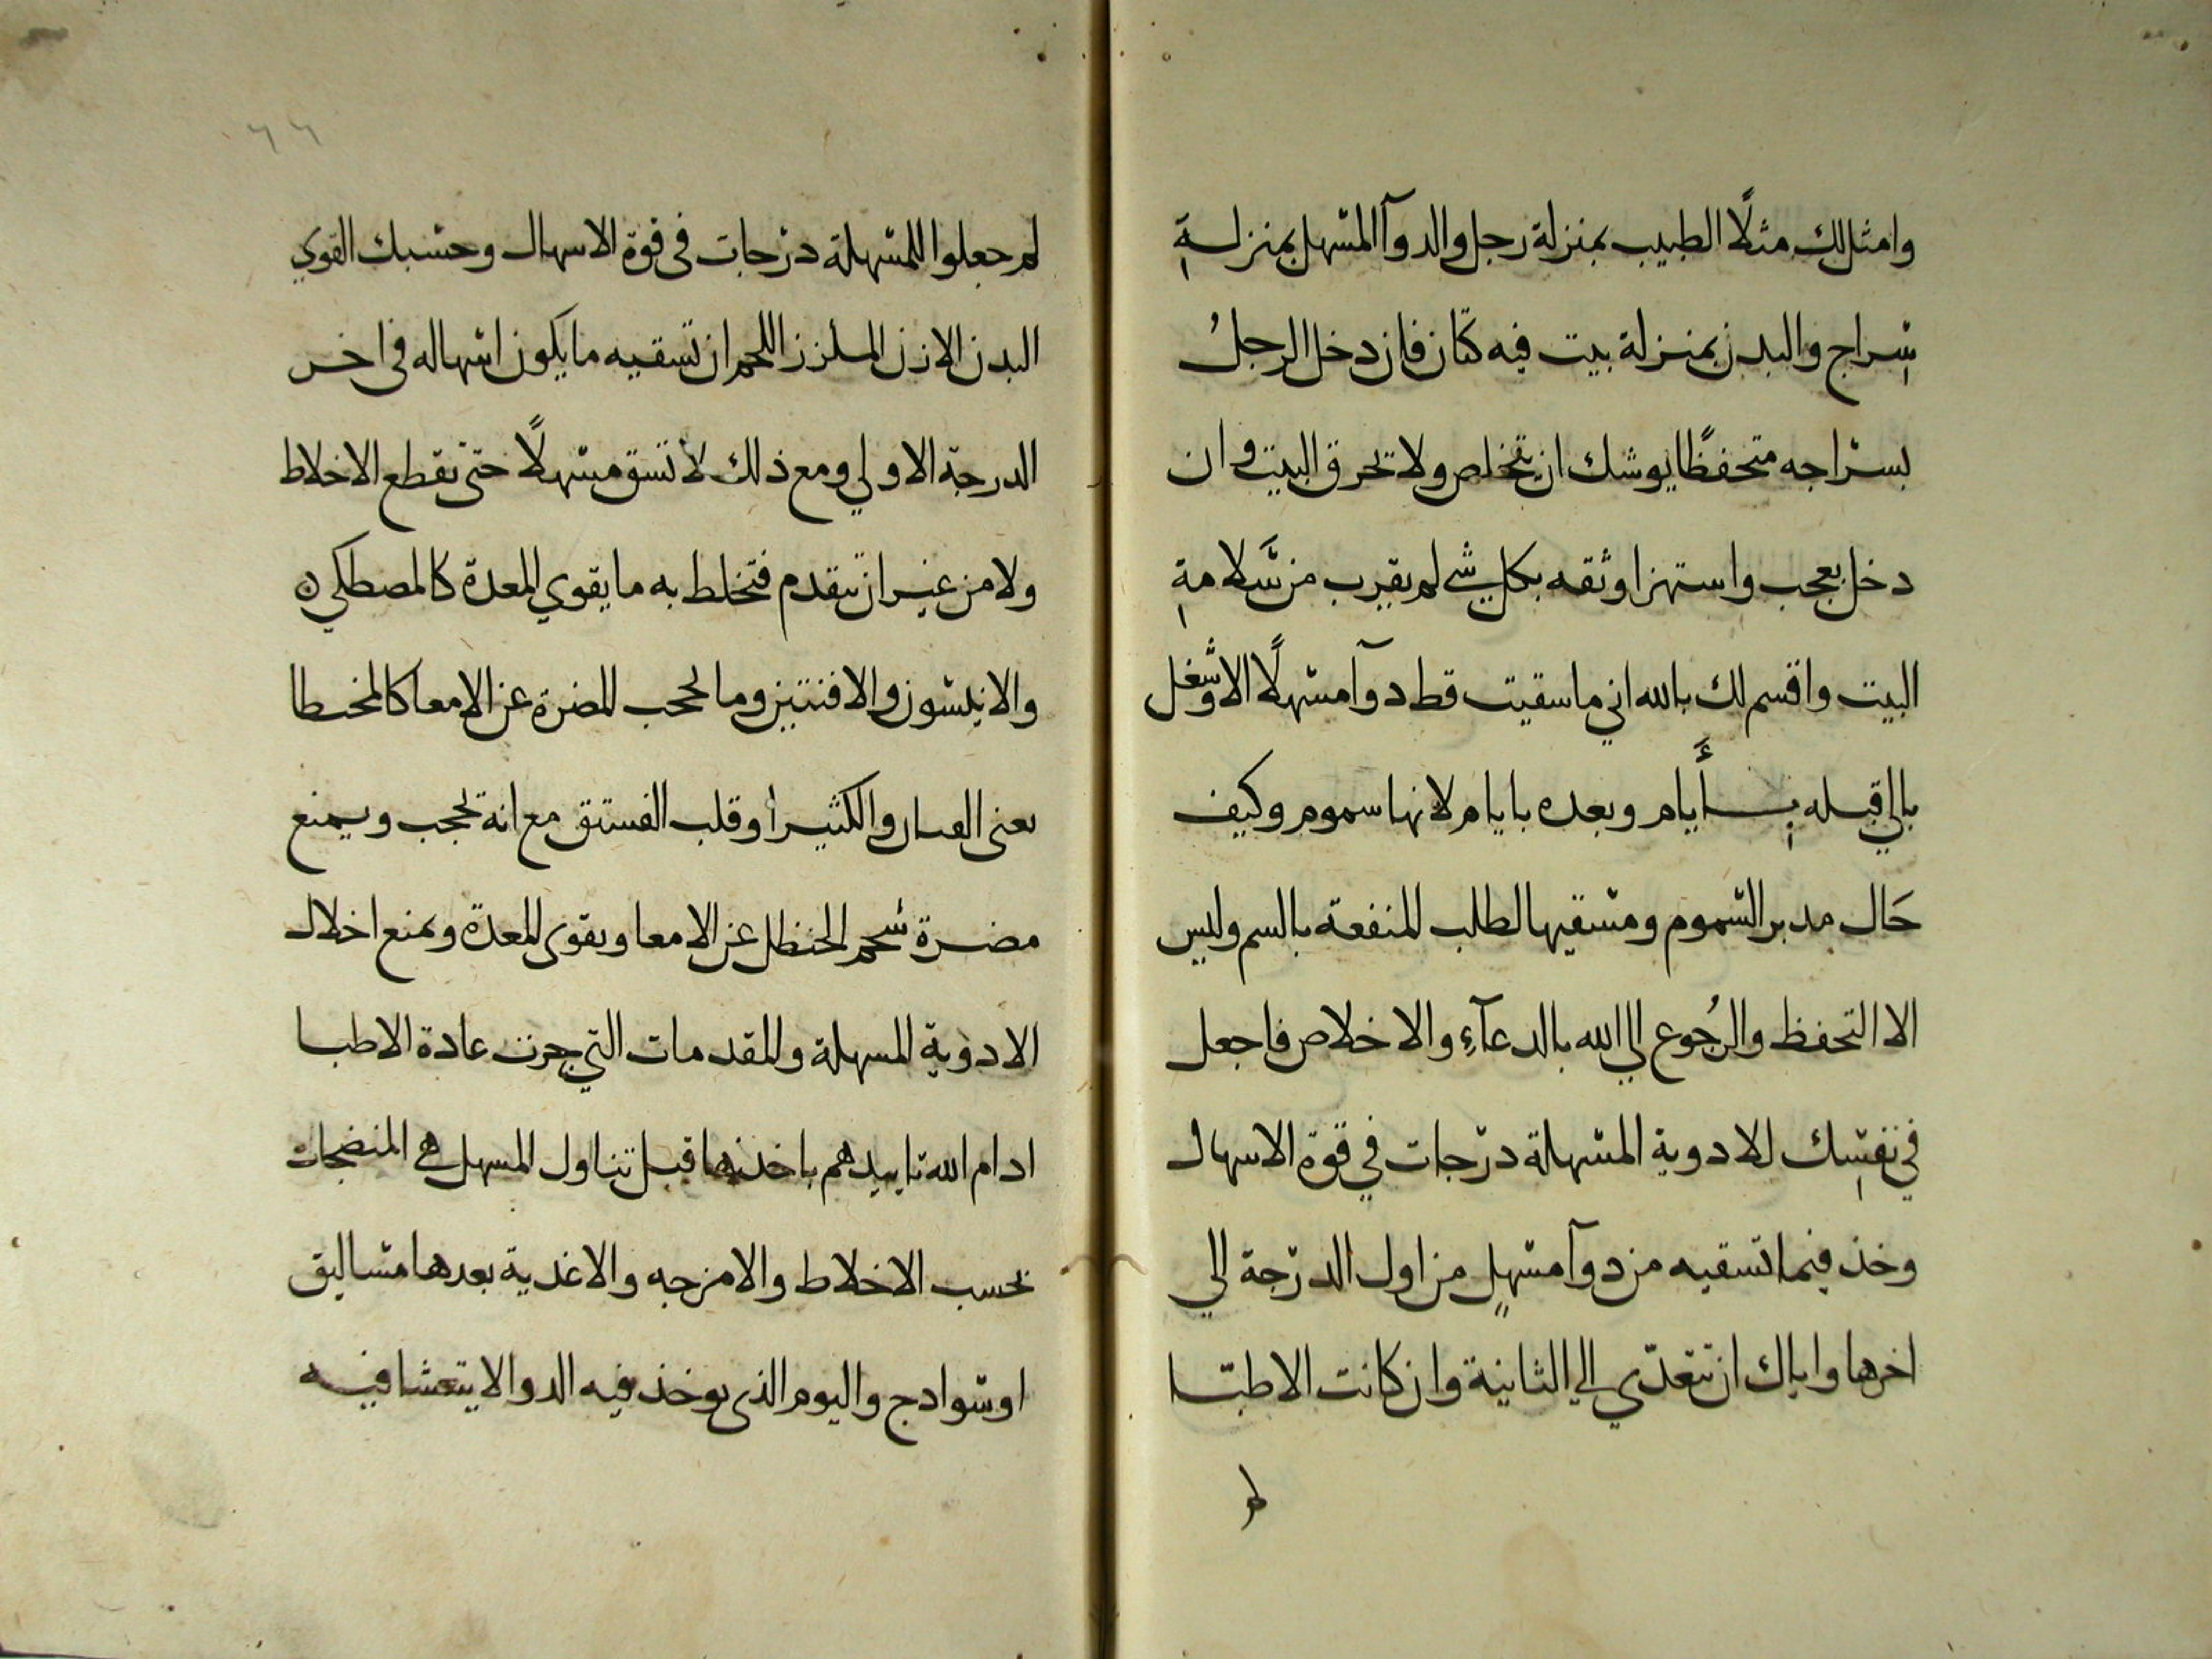 وامثل لك مثلًا الطبيب بمنزلة رجل والدوآ المسهل بمنزلةِ
سِراج والبدن بمنزلة بيت فيه كتان فان دخل الرجلُ
بسراجه متحفظًا يوشك ان يتخلص ولا تحرق البيت وان
دخل بعجب واستهزا وثقه بكل شي لم يقرب من سَلامةِ
البيت واقسم لك بالله اني ما سقيت قط دوآ مسهلًا الا وشغل
بالي قبله بأيام وبعده بايام لانها سموم وكيف
حَال مدبر السموم ومسقيها لطلب المنفعة بالسم وليس
الا التحفظ والرُجوع الي الله بالدعآءِ والاخلاص فاجعل
في نفسِك للادوية المسهلة درجات في قوة الاسهال
وخذ فيما تسقيه من دوآ مسهلٍ من اول الدرجة الي
اخرها واياك ان تتعدّي الي الثانية وان كانت الاطبّا
لم جعلوا للمسهلة درجات في قوة الاسهال وحسبك القوي
البدن الازل الملزز اللحم ان تسقيه ما يكون اسهاله في اخر
الدرجة الاولي ومع ذلك لا تسق مسهلًا حتى يقطع الاخلاط
ولا من غير ان تتقدم فتخلط به ما يقوي المعدة كالمصطكي
والانيسون والافنتين وما يحجب المضرة عن الامعا كالمخيطا
يعنى والكثيرا وقلب الفستق مع انه يحجب ويمنع
مضرة شحم الحنظل عن الامعا ويقوى المعدة ويمنع اخلال
الادوية المسهلة والمقدمات التي جرت عادة الاطبا
ادام الله تاييدهم باخذها قبل تناول المسهل هي المنضجات
بحسب الاخلاط والامزجه والاغذية بعدها مساليق
او سوادج واليوم الذى يوخذ فيه الدوا لا يتعشا فيه